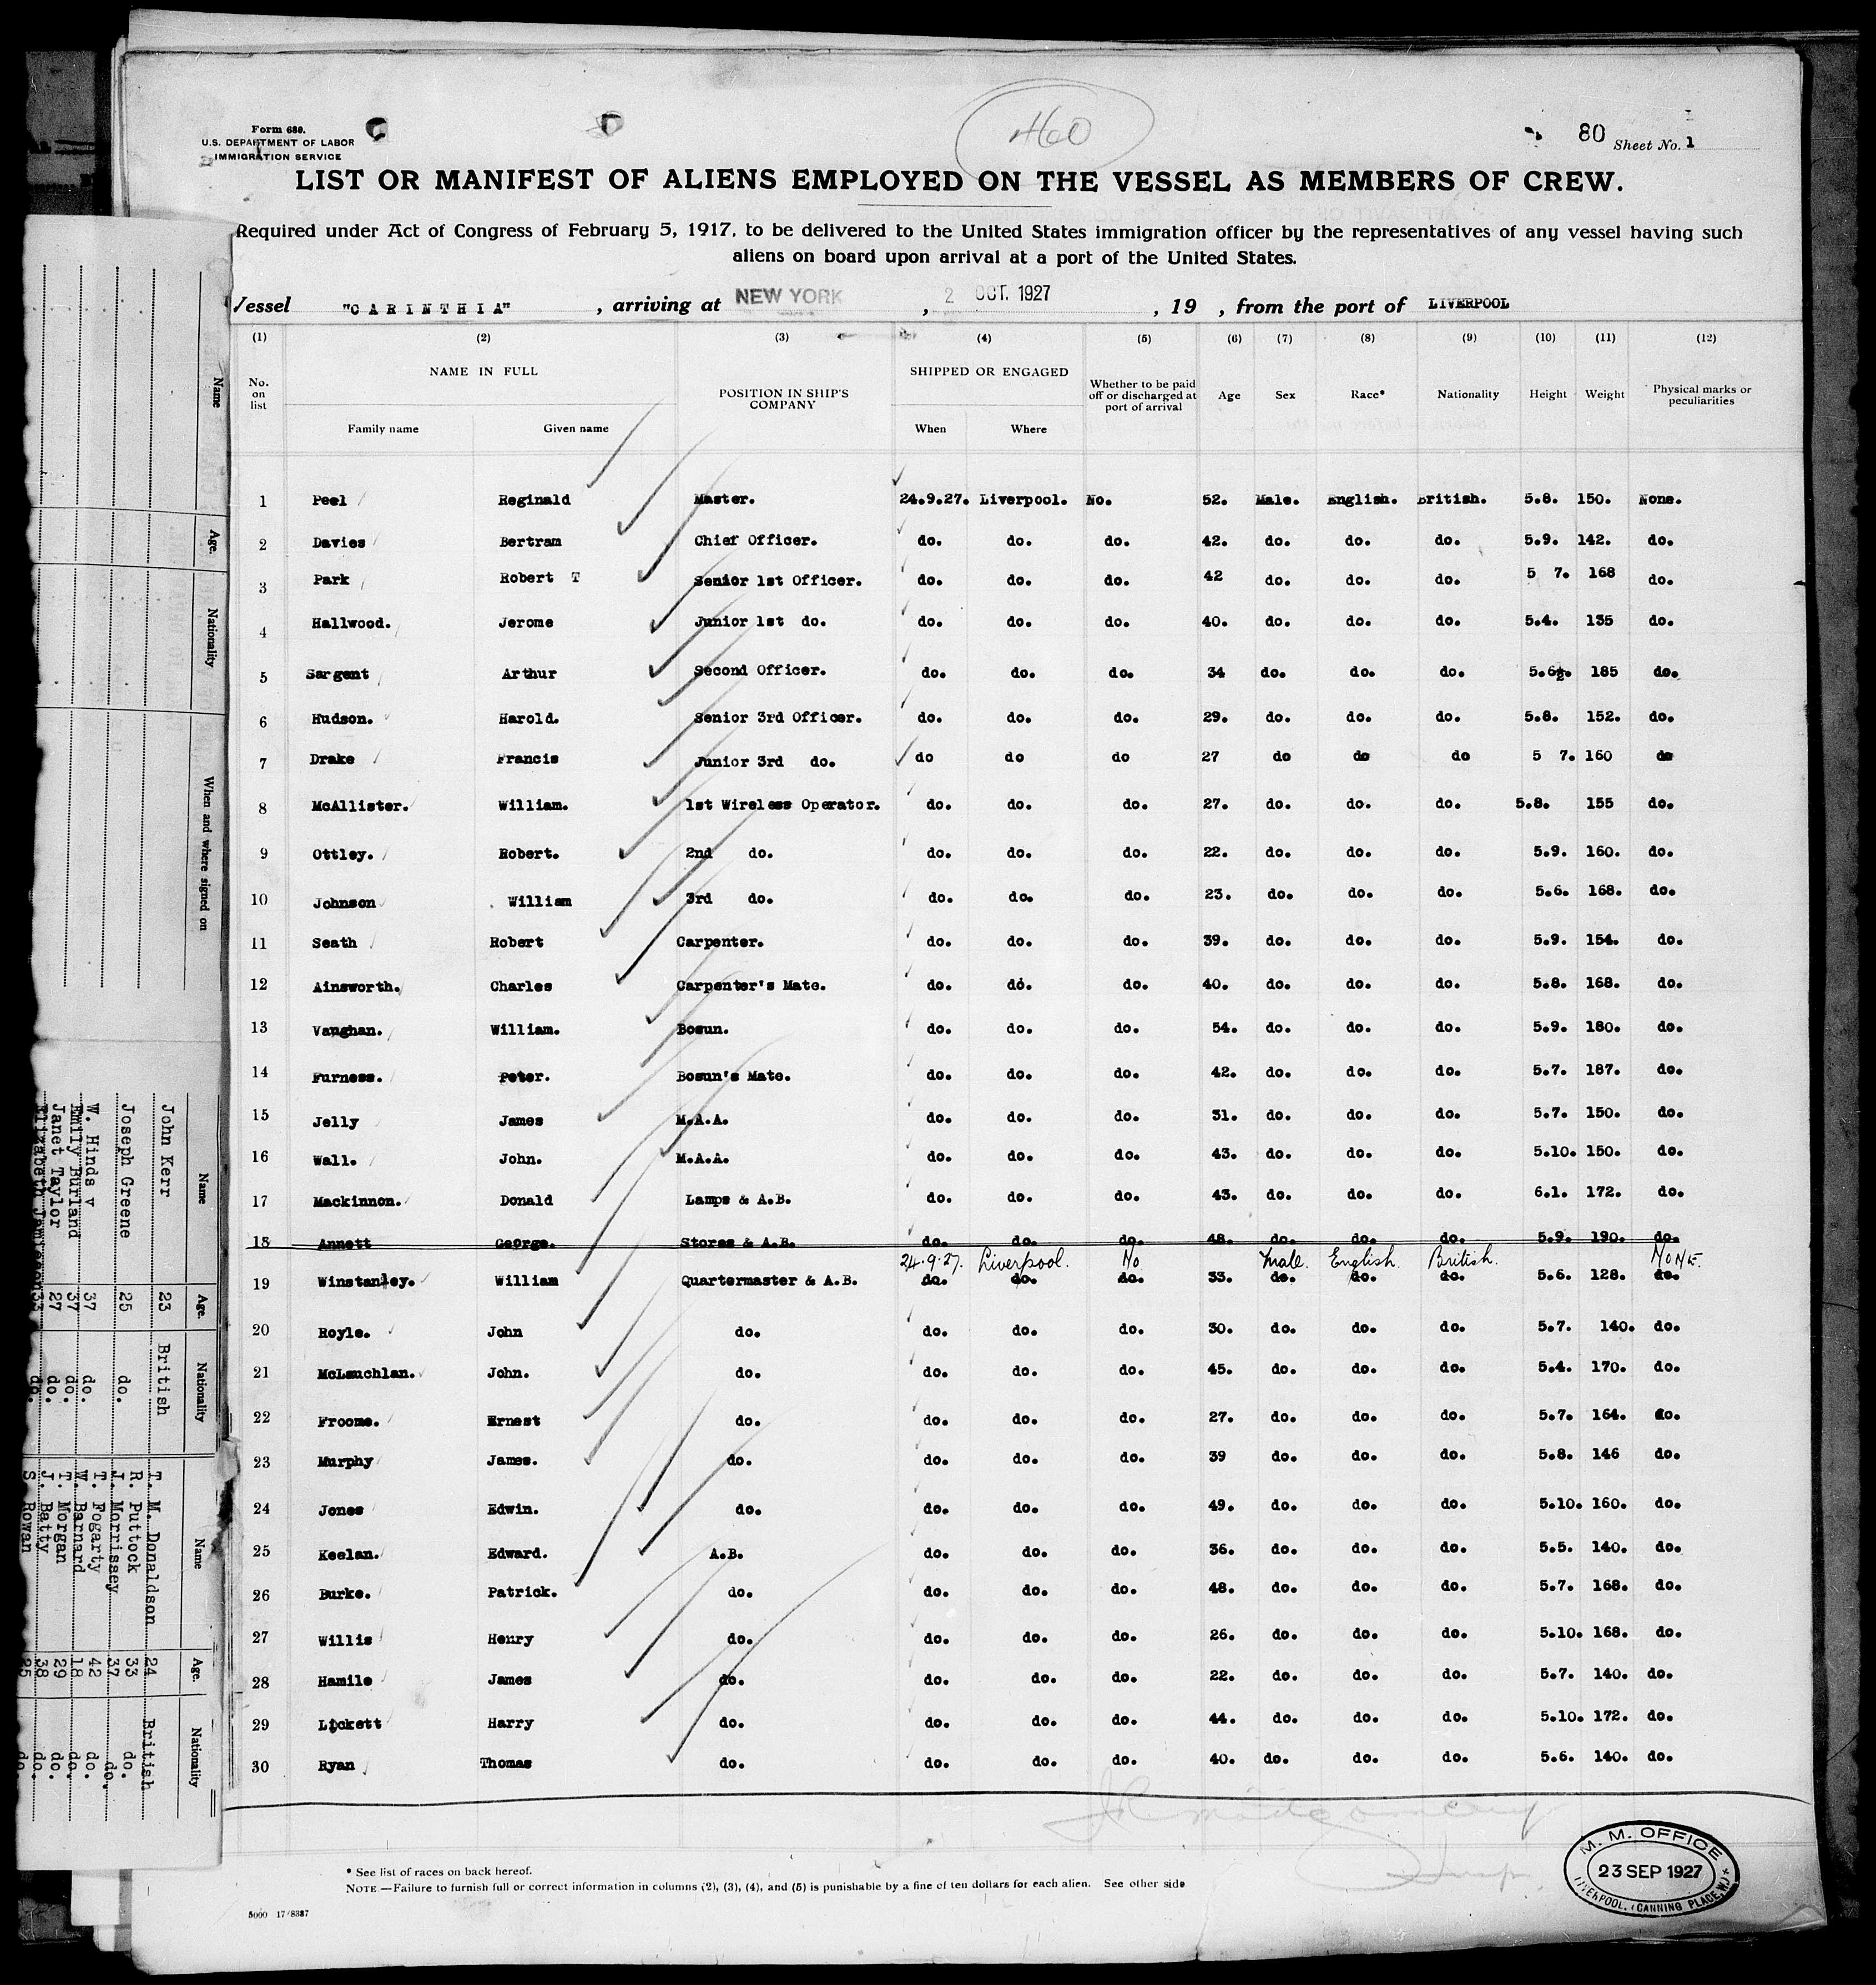 Form 689.
U.S. DEPARTMENT OF LABOR
IMMIGRATION SERVICE
460
80 Sheet No. 1
LIST OR MANIFEST OF ALIENS EMPLOYED ON THE VESSEL AS MEMBERS OF CREW.
Required under Act of Congress of February 5, 1917, to be delivered to the United States immigration officer by the representatives of any vessel having such
aliens on board upon arrival at a port of the United States.
Vessel "CARINTHIA" , arriving at NEW YORK , 2 OCT. 1927 , 19 , from the port of LIVERPOOL
(1) (2) (3) (4) (5) (6) (7) (8) (9) (10) (11) (12)
No. on list NAME IN FULL Family name Given name POSITION IN SHIP'S COMPANY SHIPPED OR ENGAGED When Where Whether to be paid off or discharged at port of arrival Age Sex Race* Nationality Height Weight Physical marks or peculiarities
1 Peel Reginald Master. 24.9.27. Liverpool. No. 52. Male. English. British. 5.8. 150. None.
2 Davies Bertram Chief Officer. do. do. do. 42. do. do. do. 5.9. 142. do.
3 Park Robert T Senior 1st Officer. do. do. do. 42 do. do. do. 5 7. 168 do.
4 Hallwood. Jerome Junior 1st do. do. do. do. 40. do. do. do. 5.4. 135 do.
5 Sargent Arthur Second Officer. do. do. do. 34 do. do. do. 5.6½. 185 do.
6 Hudson. Harold. Senior 3rd Officer. do. do. do. 29. do. do. do. 5.8. 152. do.
7 Drake Francis Junior 3rd do. do do do 27 do do do 5 7. 160 do
8 McAllister. William. 1st Wireless Operator. do. do. do. 27. do. do. do. 5.8. 155 do.
9 Ottley. Robert. 2nd do. do. do. do. 22. do. do. do. 5.9. 160. do.
10 Johnson William 3rd do. do. do. do. 23. do. do. do. 5.6. 168. do.
11 Seath Robert Carpenter. do. do. do. 39. do. do. do. 5.9. 154. do.
12 Ainsworth. Charles Carpenter's Mate. do. do. do. 40. do. do. do. 5.8. 168. do.
13 Vaughan. William. Bosun. do. do. do. 54. do. do. do. 5.9. 180. do.
14 Furness. Peter. Bosun's Mate. do. do. do. 42. do. do. do. 5.7. 187. do.
15 Jelly James M.A.A. do. do. do. 31. do. do. do. 5.7. 150. do.
16 Wall. John. M.A.A. do. do. do. 43. do. do. do. 5.10. 150. do.
17 Mackinnon. Donald Lamps & A.B. do. do. do. 43. do. do. do. 6.1. 172. do.
18 Annett George. Stores & A.B. do. do. do. 48. do. do. do. 5.9. 190. do.
24.9.27. Liverpool. No Male. English. British. None.
19 Winstanley. William Quartermaster & A.B. do. do. do. 33. do. do. do. 5.6. 128. do.
20 Royle. John do. do. do. do. 30. do. do. do. 5.7. 140. do.
21 McLauchlan. John. do. do. do. do. 45. do. do. do. 5.4. 170. do.
22 Froome. Ernest do. do. do. do. 27. do. do. do. 5.7. 164. do.
23 Murphy James. do. do. do. do. 39 do. do. do. 5.8. 146 do.
24 Jones Edwin. do. do. do. do. 49. do. do. do. 5.10. 160. do.
25 Keelan. Edward. A.B. do. do. do. 36. do. do. do. 5.5. 140. do.
26 Burke. Patrick. do. do. do. do. 48. do. do. do. 5.7. 168. do.
27 Willis Henry do. do. do. do. 26. do. do. do. 5.10. 168. do.
28 Hamile James do. do. do. do. 22. do. do. do. 5.7. 140. do.
29 Lickett Harry do. do. do. do. 44. do. do. do. 5.10. 172. do.
30 Ryan Thomas do. do. do. do. 40. do. do. do. 5.6. 140. do.
* See list of races on back hereof.
NOTE.—Failure to furnish full or correct information in columns (2), (3), (4), and (5) is punishable by a fine of ten dollars for each alien. See other side
5000 17/8387
M. M. OFFICE
23 SEP 1927
LIVERPOOL. (CANNING PLACE, W.)
Name Age. Nationality When and where signed on
Name Age. Nationality
John Kerr 23 British
Joseph Greene 25 do.
W. Hinds v 37 do.
Emily Burland 37 do.
Janet Taylor 27 do.
Elizabeth Jamieson 33 do.
Name Age. Nationality
T. M. Donaldson 24 British
R. Puttock 33 do.
J. Morrissey 37 do.
T. Fogarty 42 do.
W. Barnard 18 do.
T. Morgan 29 do.
J. Batty 38 do.
S. Rowan 25 do.